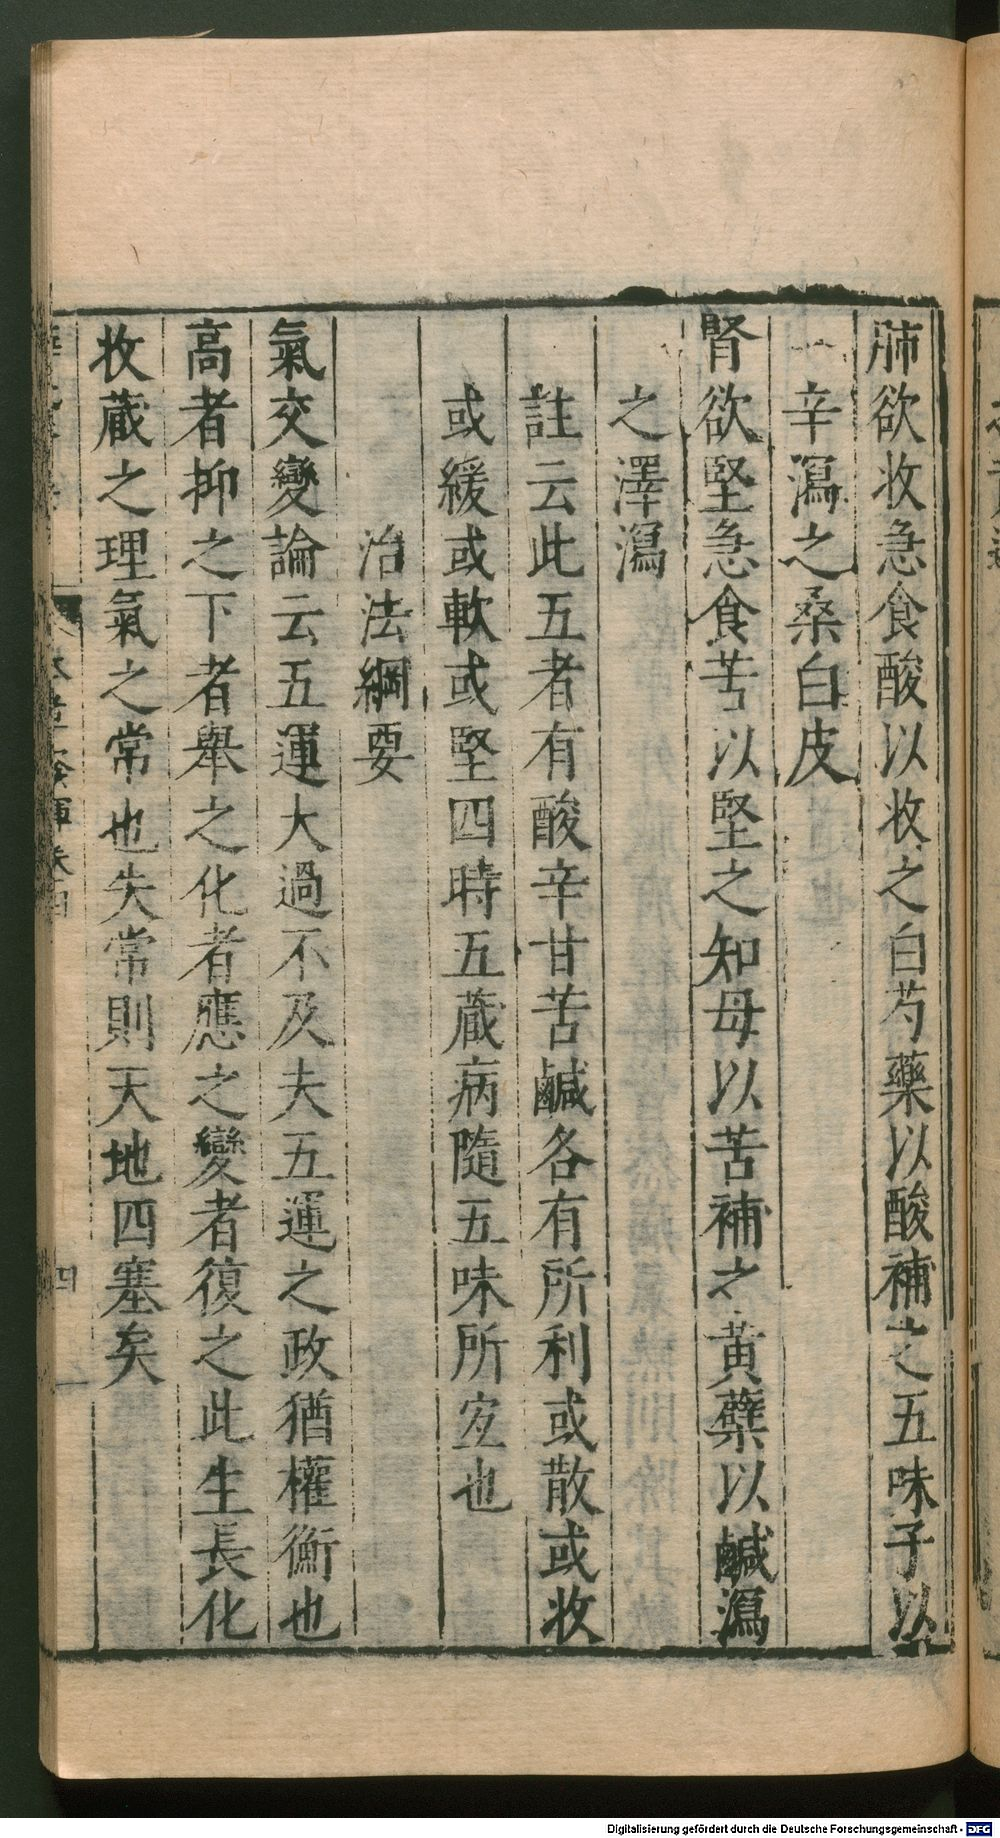 肺欲收急食酸以收之白芍藥以酸補之五味子以
辛瀉之桑白皮
腎欲堅急食苦以堅之知母以苦補之黃蘗以鹹瀉
之澤瀉
註云此五者有酸辛甘苦鹹各有所利或散或收
或緩或軟或堅四時五蔵病隨五味所宜也
治法綱要
氣交變論云五運大過不及夫五運之政猶權衡也
高者抑之下者舉之化者應之變者復之此生長化
收蔵之理氣之常也失常則天地四塞矣
本草發揮 卷四
四
Digitalisierung gefördert durch die Deutsche Forschungsgemeinschaft - DFG